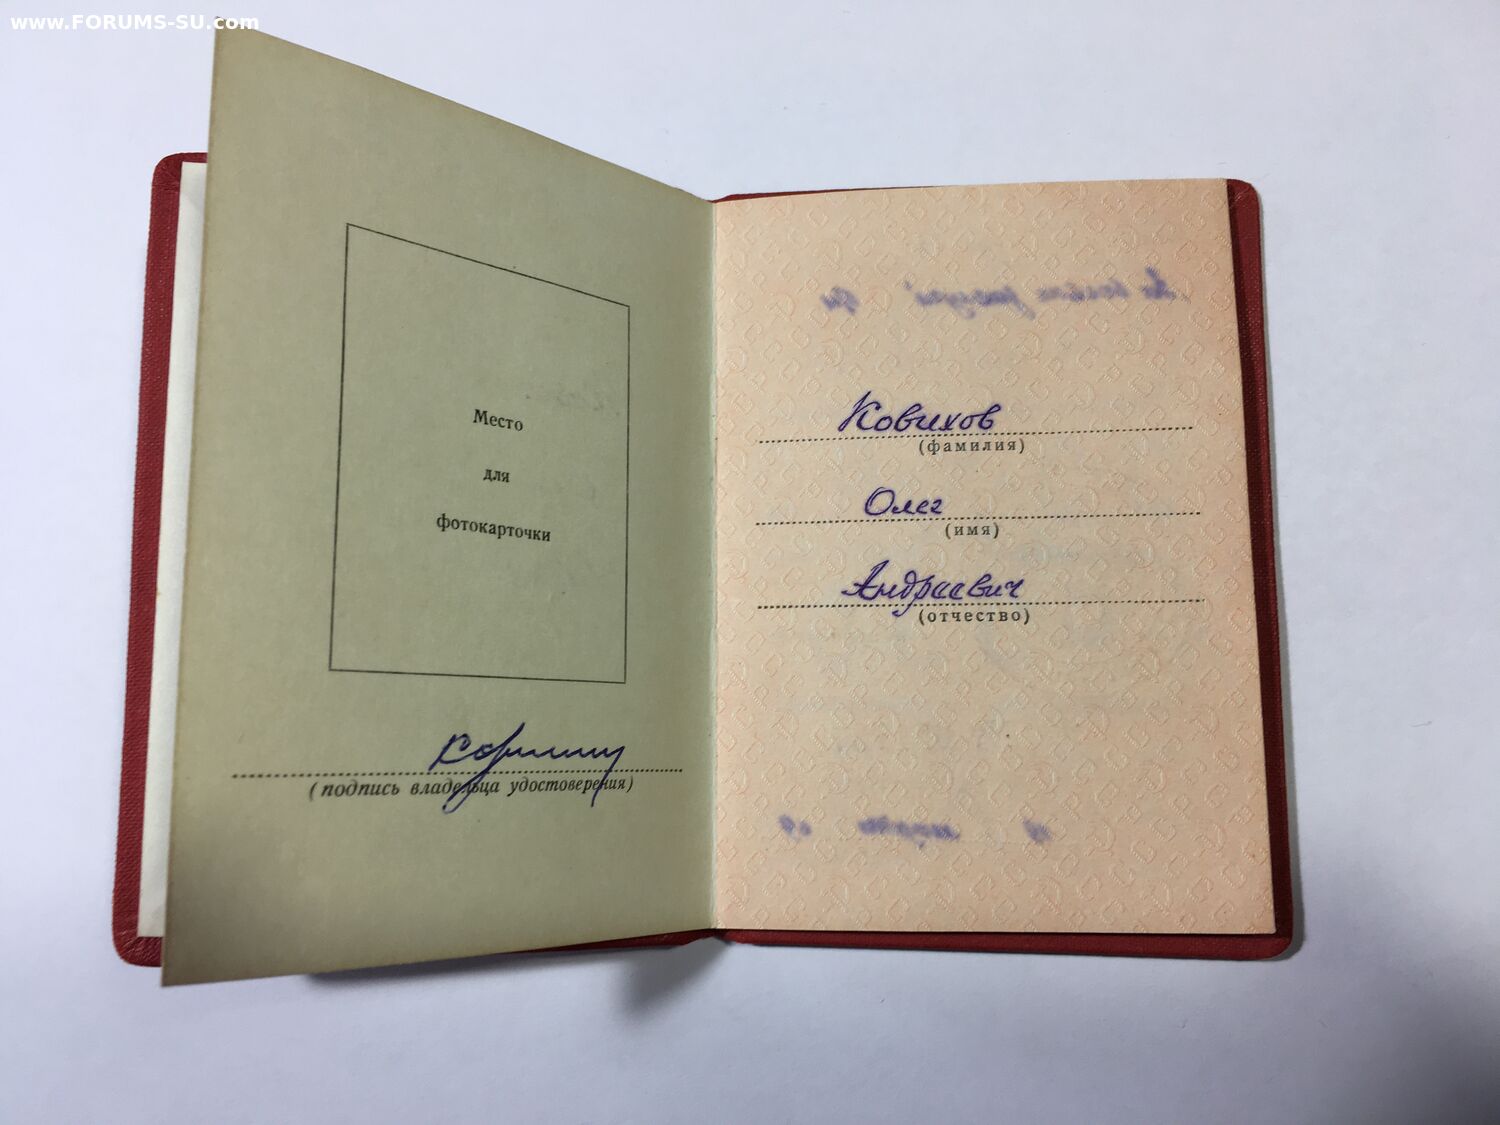 www.FORUMS-SU.com
Место
для
фотокарточки
(подпись владельца удостоверения)
Ковихов
(фамилия)
Олег
(имя)
Андреевич
(отчество)